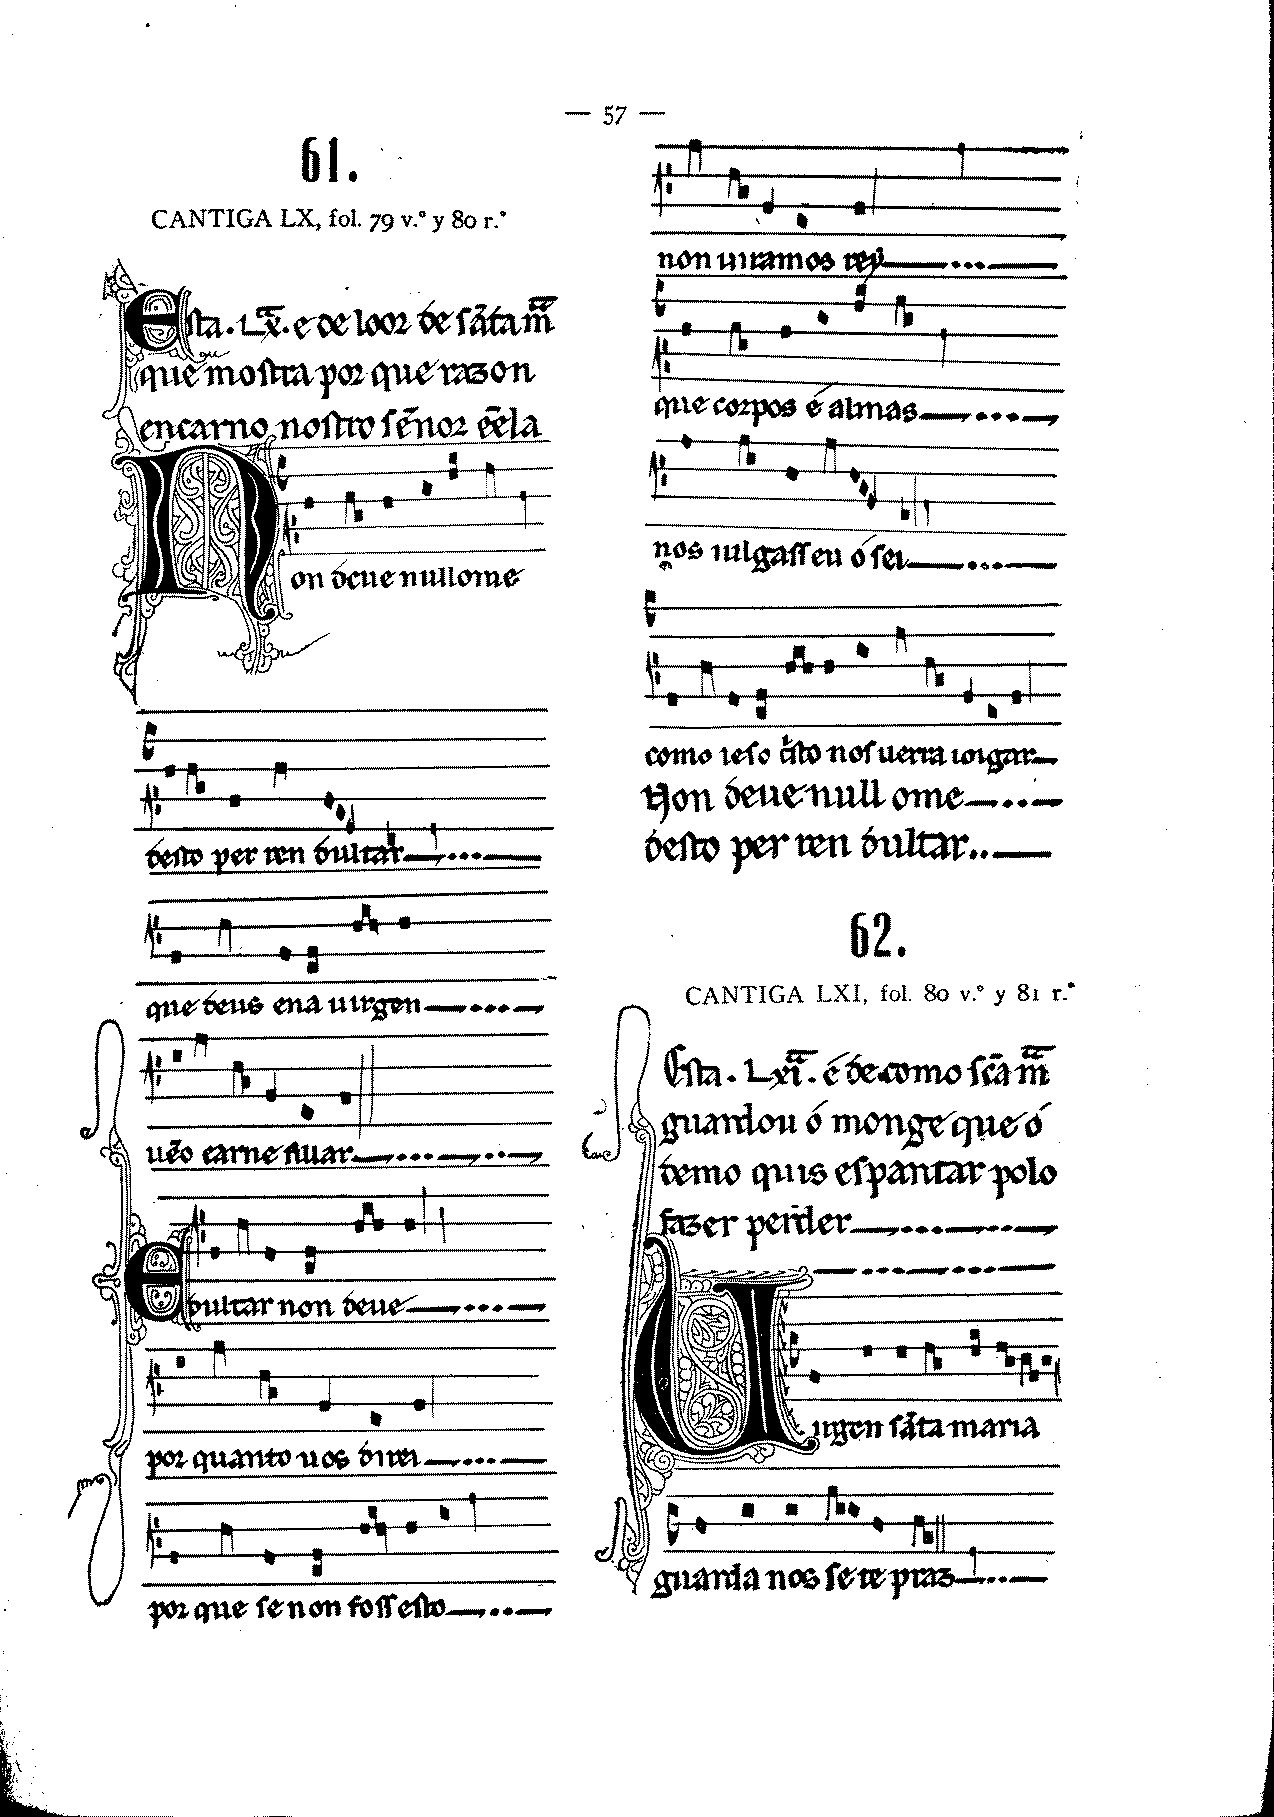 — 57 —
61.
CANTIGA LX, fol. 79 v.° y 80 r.°
Esta . Lx.ª e de loor de sãta mª
que mostra por que razon
encarno nostro sẽnor ẽela
Non deue null ome
desto per ren dultar
que deus ena uirgen
uẽo carne fillar
E dultar non deue
por quanto uos direi
por que se non foss esto
non uiramos rey
que corpos é almas
nos iulgass eu ó sei
como ieso c̃sto nos uerra ioigar
Non deue null ome
desto per ren dultar..
62.
CANTIGA LXI, fol. 80 v.° y 81 r.°
Esta . Lxi.ª é de como sc̃a mª
guardou ó monge que ó
demo quis espantar polo
fazer perder
Uirgen sãta maria
guarda nos se te praz